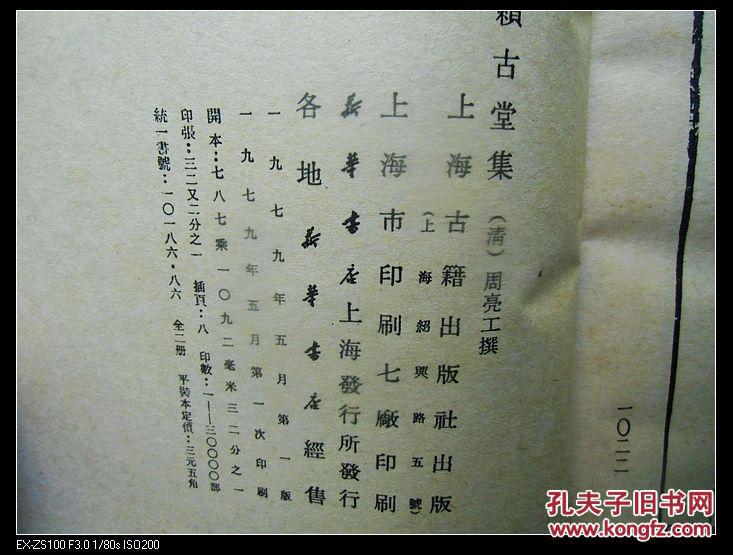 賴古堂集 (清) 周亮工撰
上海古籍出版社出版
(上海紹興路五號)
上海市印刷七廠印刷
新華書店上海發行所發行
各地新華書店經售
一九七九年五月第一版
一九七九年五月第一次印刷
開本:七八七乘一〇九二毫米三二分之一
印張:三二又二分之一 插頁:八 印數:一——三〇〇〇〇部
統一書號:一〇一八六·八六 全二册 平裝本定價:三元五角
一〇二二
孔夫子旧书网
www.kongfz.com
EX-ZS100 F3.0 1/80s ISO200